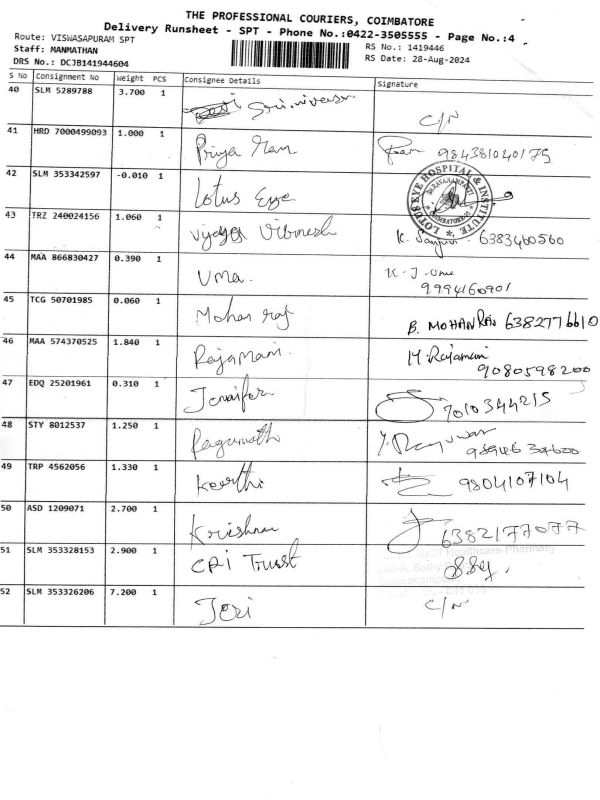 THE PROFESSIONAL COURIERS, COIMBATORE
Delivery Runsheet - SPT - Phone No.:0422-3505555 - Page No.:4
Route: VISWASAPURAM SPT
RS No.: 1419446
Staff: MANMATHAN
RS Date: 28-Aug-2024
DRS No.: DCJB141944604
S No Consignment No Weight PCS Consignee Details Signature
40 SLM 5289788 3.700 1 C/N
41 HRD 7000499093 1.000 1 Priya Ram 984381040175
42 SLM 353342597 -0.010 1 Lotus Eye
LOTUS EYE HOSPITAL & INSTITUTE
43 TRZ 240024156 1.060 1 Vibinesh K. 6383460560
44 MAA 866830427 0.390 1 Uma. K-J-Uma
9994160901
45 TCG 50701985 0.060 1 Mohan raj B. MOHAN RAJ 6382776610
46 MAA 574370525 1.840 1 Rajamani. M. Rajamani
9080598200
47 EDQ 25201961 0.310 1 Jennifer 7010344215
48 STY 8012537 1.250 1 Ragunath
49 TRP 4562056 1.330 1 Keerthi 9804107104
50 ASD 1209071 2.700 1 Krishnan 6382177077
51 SLM 353328153 2.900 1 CRI Trust
Healthcare Pharmacy
52 SLM 353326206 7.200 1 Jeri C/N